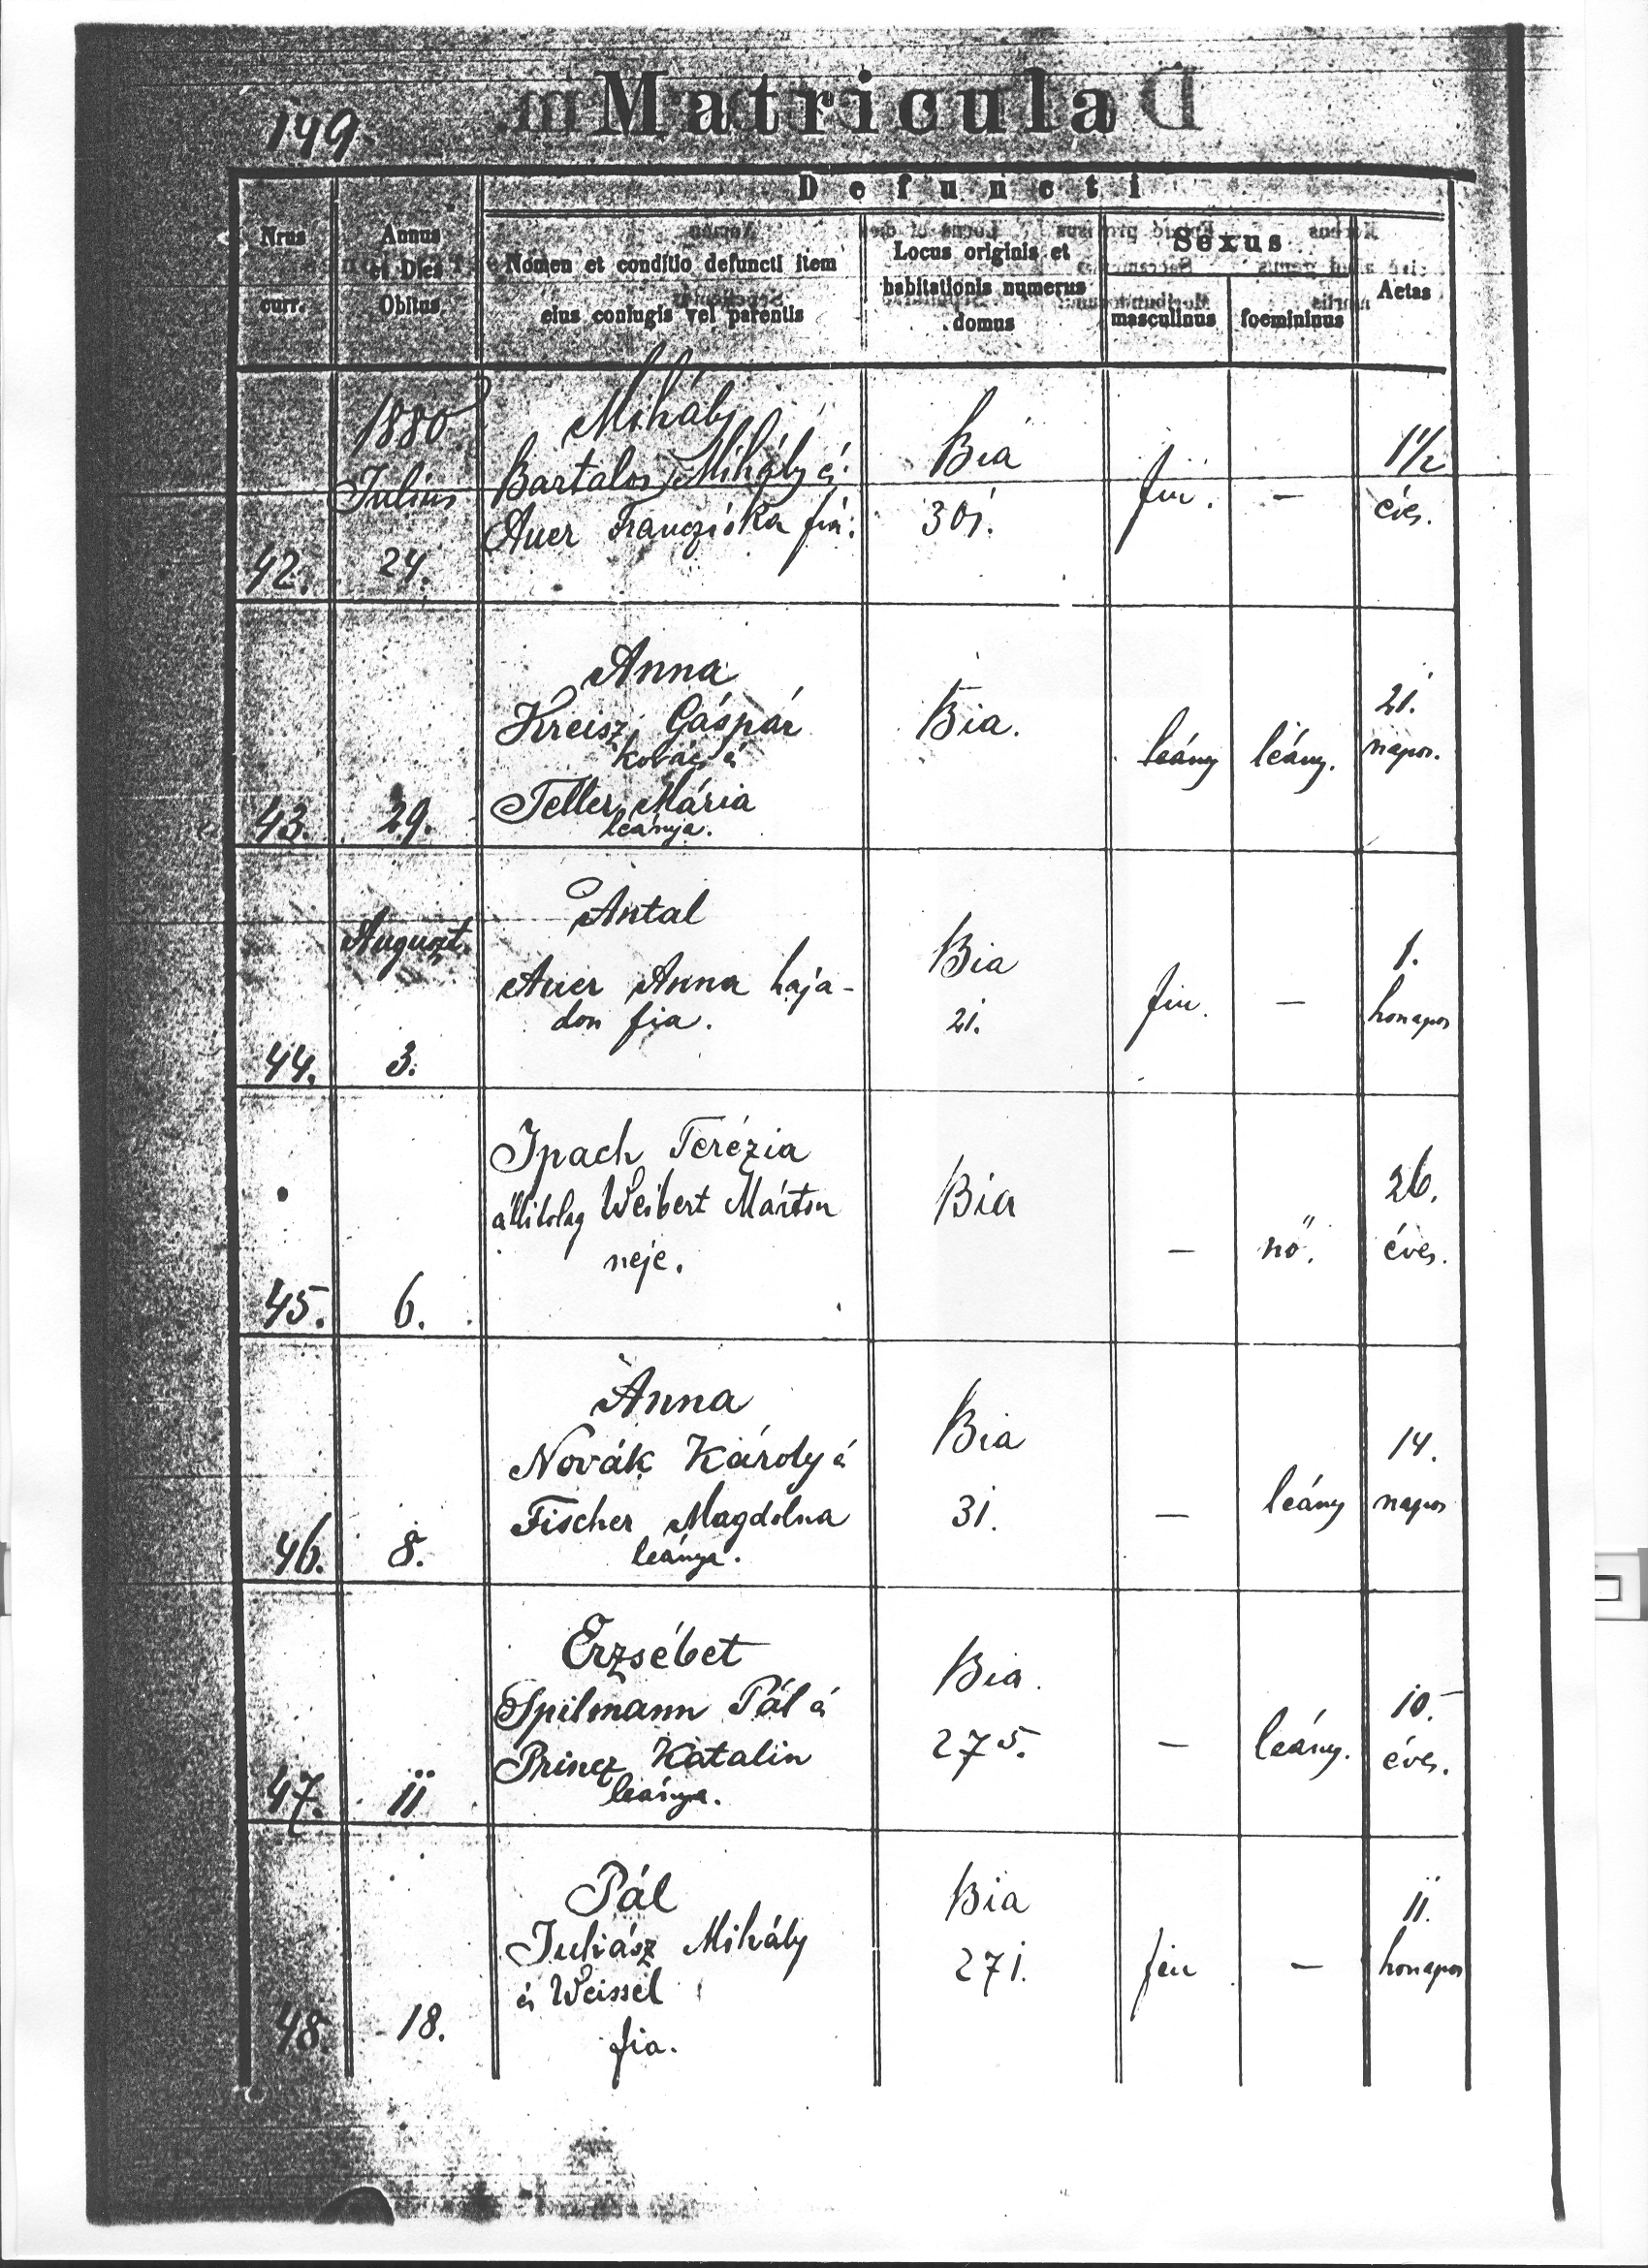 149.
Matricula
Defuncti
Nrus curr.
Annus et Dies Obitus
Nomen et conditio defuncti item eius coniugis vel parentis
Locus originis et habitationis numerus domus
Sexus
masculinus
foemininus
Aetas
1880
Julius
42.
24.
Mihály
Bartalos Mihály és
Auer Francziska fia.
Bia
301.
fiu.
—
1 1/2
éves.
43.
29.
Anna
Kreisz Gáspár
kovács és
Teller Mária
leánya.
Bia.
leány
leány.
21.
napos.
August.
44.
3.
Antal
Auer Anna haja-
don fia.
Bia
21.
fiu.
—
1.
honapos
45.
6.
Ipach Terézia
állitolag Weibert Márton
neje.
Bia
—
nő.
26.
éves.
46.
8.
Anna
Novák Károly és
Fischer Magdolna
leánya.
Bia
31.
—
leány
14.
napos
47.
11
Erzsébet
Spilmann Pál és
Princz Katalin
leánya.
Bia.
275.
—
leány.
10.
éves.
48.
18.
Pál
Juhász Mihály
és Weissel
fia.
Bia
271.
fiu
—
11.
honapos